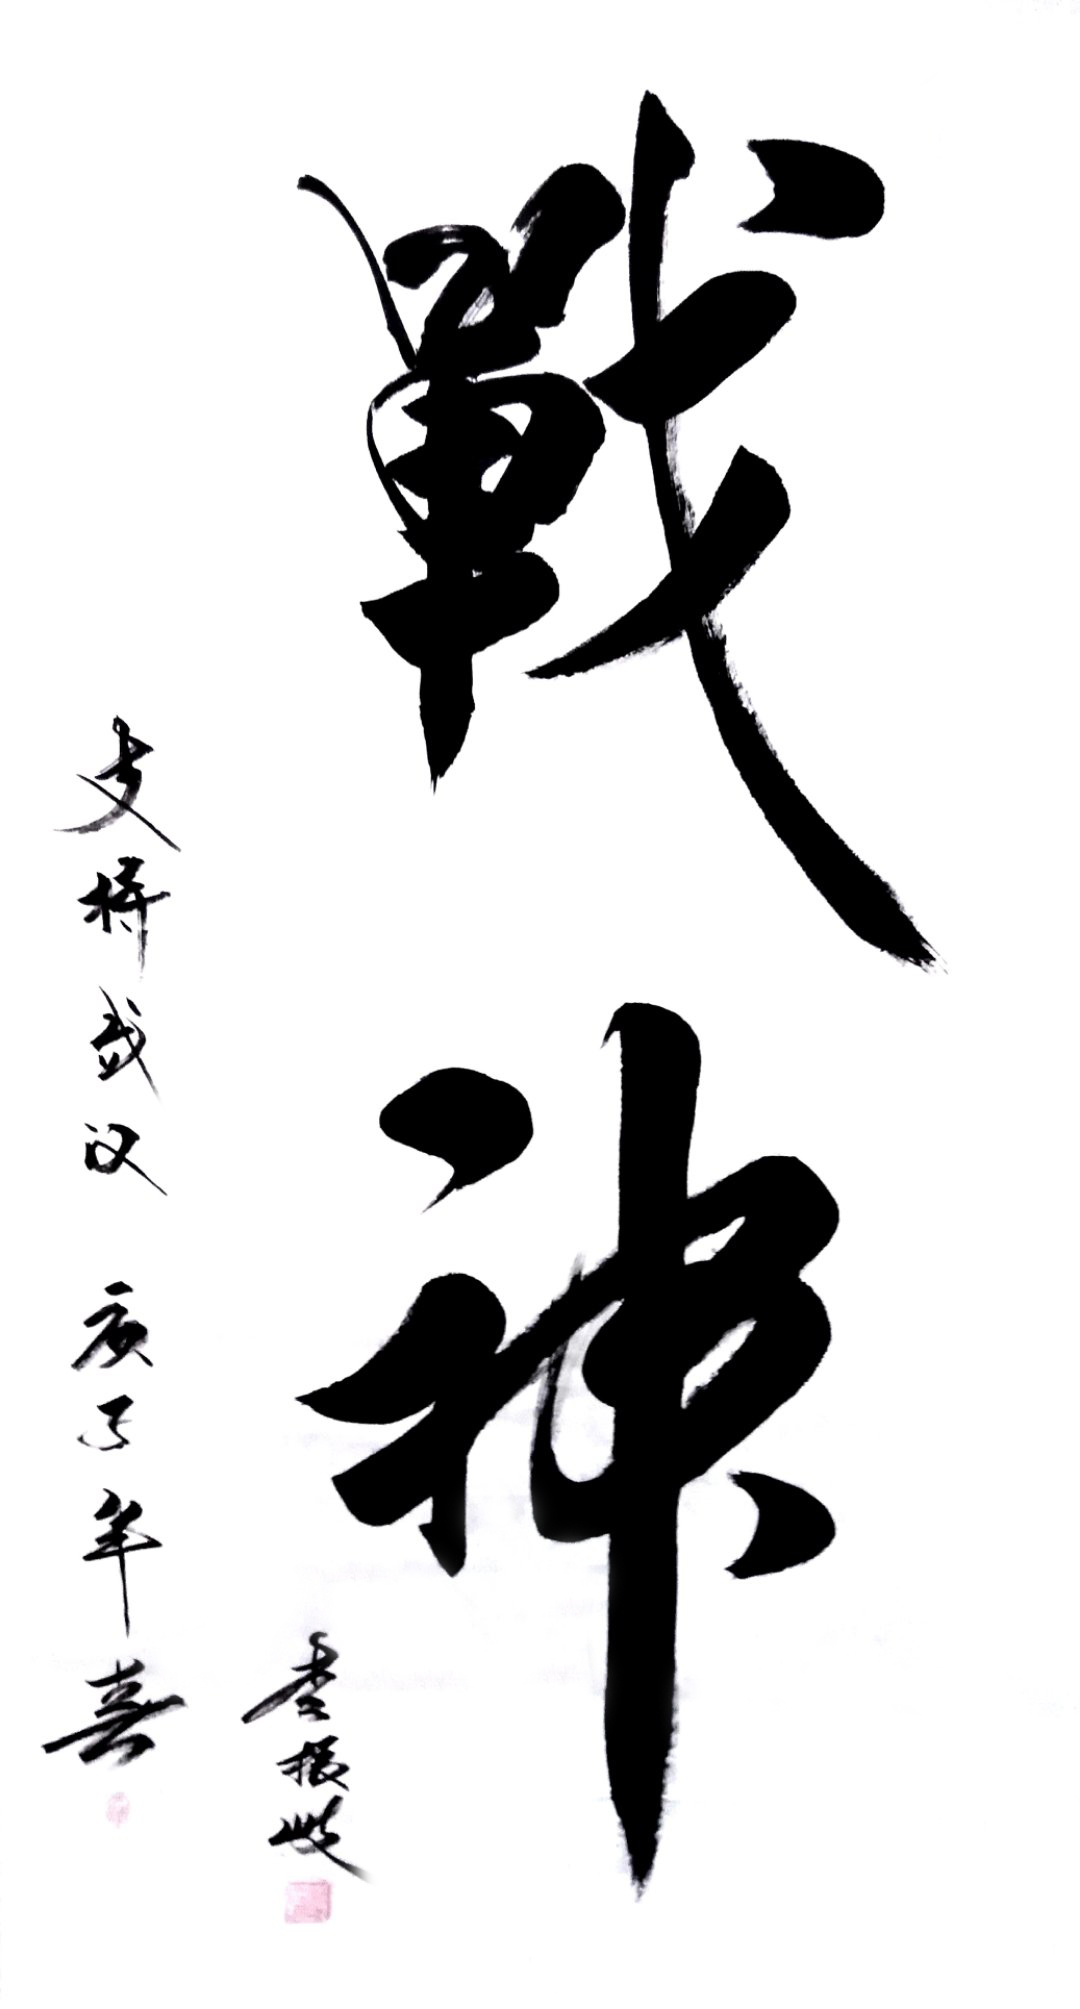 戰神
支持武汉 庚子年春
李振